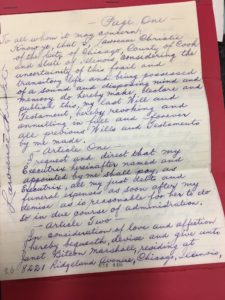 — Page One —
To all whom it may concern:
Know ye, that I, Lawrence Christie
of the City of Chicago, County of Cook
and State of Illinois, considering the
uncertainty of this frail and
transitory life and being possessed
of a sound and disposing mind and
memory do hereby make, declare and
publish this, my Last Will and
Testament, hereby revoking and
annulling in full and forever
all previous Wills and Testaments
by me made.
— Article One —
I request and direct that my
Executrix hereinafter named and
appointed by me shall pay, as
Executrix, all my just debts and
funeral expenses as soon after my
demise as is reasonable for her to do
so in due course of administration.
— Article Two —
In consideration of love and affection
I hereby bequeath, devise and give unto
Janet Marshall, residing at
8428 Ridgeland Avenue, Chicago, Illinois,